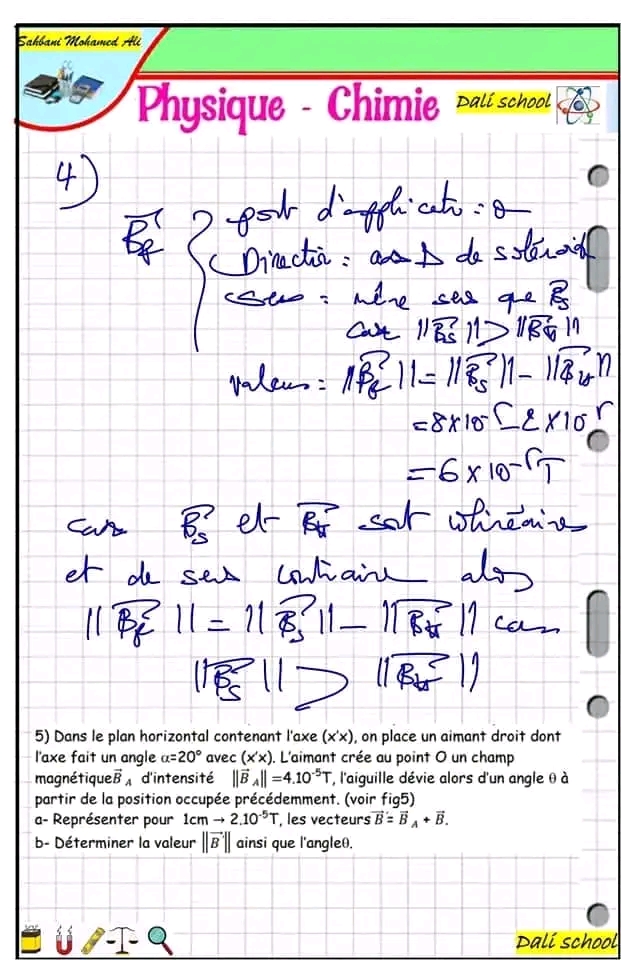 Sahbani Mohamed Ali
Physique - Chimie
Dali school
4)
point d'applicati : O
Directi : de solénoid
Sens : même sens que B⃗s
Car ||B⃗s|| > ||B⃗H||
valeur : || || = ||B⃗s|| - ||B⃗H||
= 6 x 10⁻⁵ T
car B⃗s et B⃗H sont colinéaires
et de sens contraire alors
|| || = ||B⃗s|| - ||B⃗H|| car
||B⃗s|| > ||B⃗H||
5) Dans le plan horizontal contenant l'axe (x'x), on place un aimant droit dont
l'axe fait un angle α=20° avec (x'x). L'aimant crée au point O un champ
magnétique B⃗ A d'intensité ||B⃗ A|| =4.10⁻⁵T, l'aiguille dévie alors d'un angle θ à
partir de la position occupée précédemment. (voir fig5)
a- Représenter pour 1cm → 2.10⁻⁵T, les vecteurs B⃗'= B⃗ A + B⃗.
b- Déterminer la valeur ||B⃗'|| ainsi que l'angleθ.
Dali school